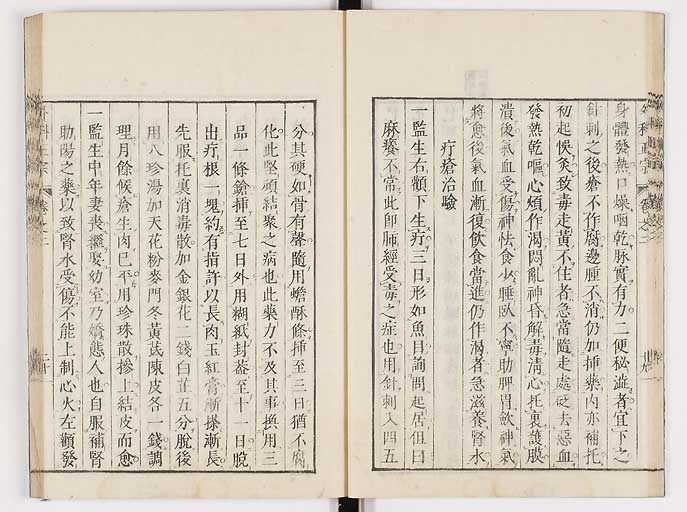 身體發熱口燥咽乾脉實有力二便秘澁者宜下之
針刺之後瘡不作腐邊腫不消仍加挿藥内亦補托
初起悞灸致毒走黃不住者急常隨走處砭去惡血
發熱乾嘔心煩作渴悶亂神昏解毒清心托裏護膜
潰後氣血受傷神怯食少睡臥不寧助脾胃飲神氣
將愈後氣血漸復飲食當進仍作渴者急滋養腎水
疔瘡治驗
一監生右顴下生疔三日形如魚目詢問起居但曰
麻癢不常此即肺經受毒之症也用針刺入四五
分其硬如骨有聲隨用蟾酥條挿至三日猶不腐
化此堅頑結聚之病也此藥力不及其事換用三
品一條鎗挿至七日外用糊紙封葢至十一日脫
出疔根一塊約有指許以長肉玉紅膏漸搽漸長
先服托裏消毒散加金銀花二錢白芷五分脫後
用八珍湯加天花粉麥門冬黃芪陳皮各一錢調
理月餘候瘡生肉已平用珍珠散摻上結皮而愈
一監生中年妻喪繼娶幼室乃嬌態人也自服補腎
助陽之藥以致腎水受傷不能上制心火左顴發
外科正宗
卷之二